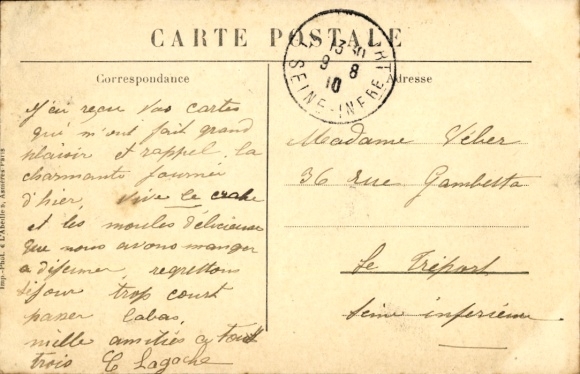 CARTE POSTALE
Correspondance
Adresse
13
9 8
10
SEINE-INFRE
J'ai reçu vos cartes
qui m'ont fait grand
plaisir et rappel la
charmante journée
d'hier, vive le crabe
et les moules délicieuse
que nous avons manger
a regrettons
séjour trop court
passer labas,
mille amitiés a tout
trois E Lagache
Madame Véber
36 rue Gambetta
le Tréport
Seine inférieure
Imp.-Phot. à L'Abeille, Asnières Paris